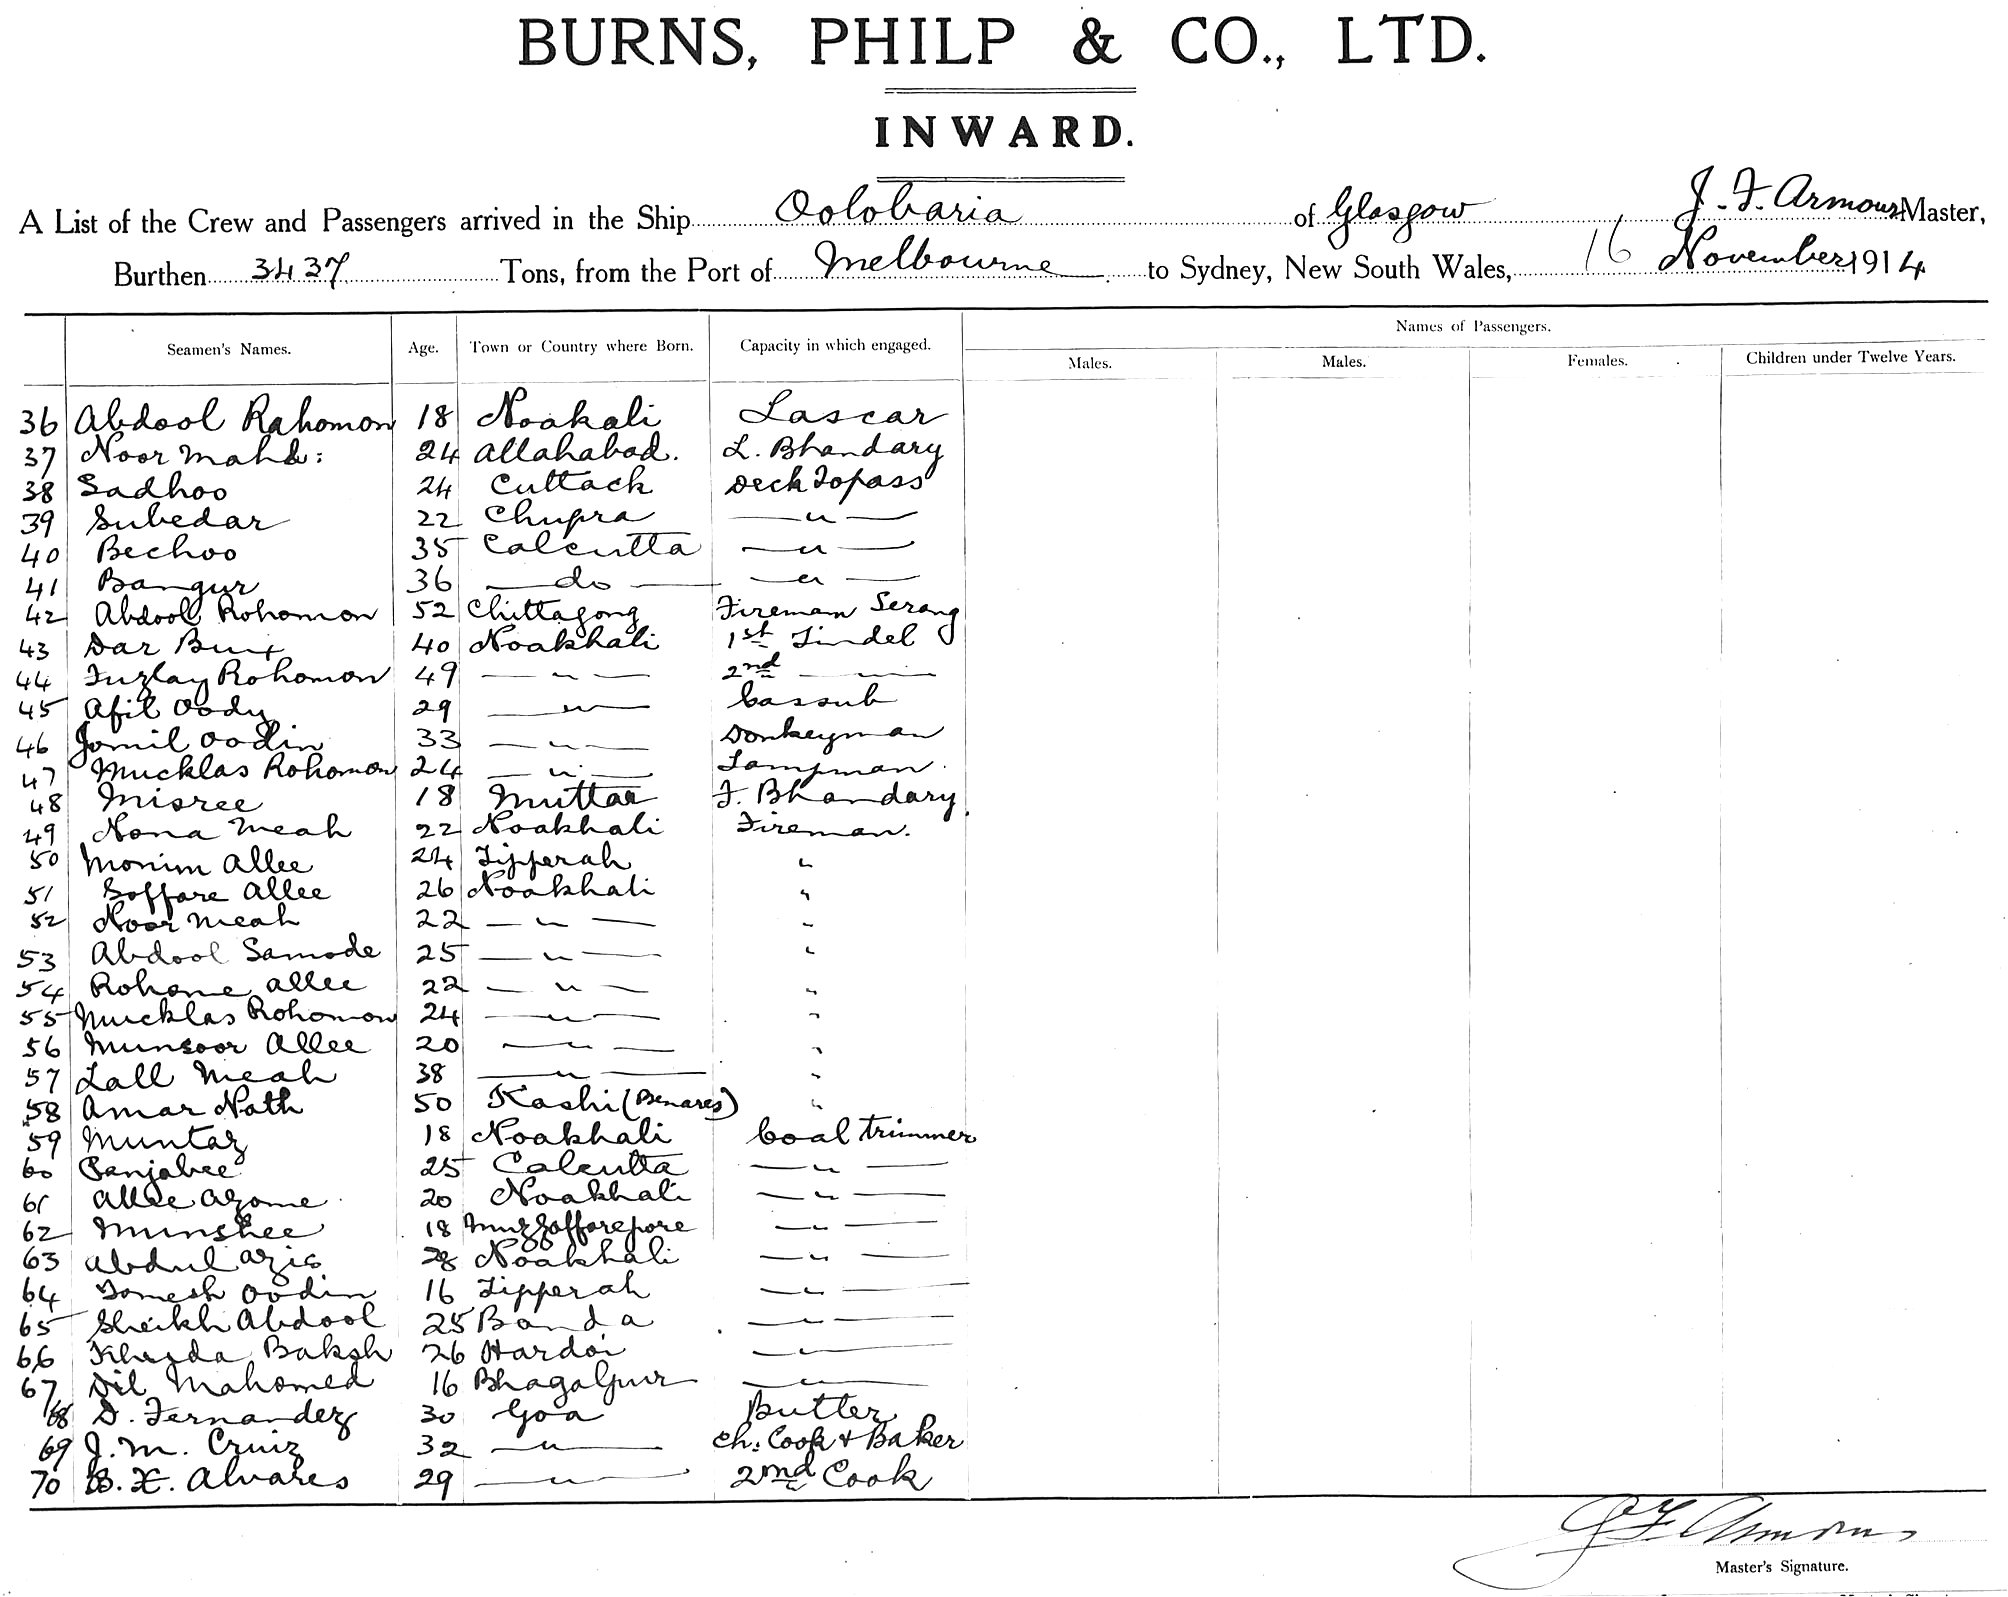 BURNS, PHILP & CO., LTD.
INWARD.
A List of the Crew and Passengers arrived in the Ship Oolobaria of Glasgow J. F. Armour Master,
Burthen 3437 Tons, from the Port of Melbourne to Sydney, New South Wales, 16 November 1914
Names of Passengers.
Seamen's Names. Age. Town or Country where Born. Capacity in which engaged. Males. Males. Females. Children under Twelve Years.
36 Abdool Rahomon 18 Noakali Lascar
37 Noor Mahd: 24 Allahabad. L. Bhandary
38 Sadhoo 24 Cuttack Deck Topass
39 Subedar 22 Chupra — " —
40 Bechoo 35 Calcutta — " —
41 Bangur 36 — do — — " —
42 Abdool Rohomon 52 Chittagong Fireman Serang
43 Dar Bux 40 Noakhali 1st Tindel
44 Fuzlay Rohomon 49 — " — 2nd — " —
45 Afil Oody 29 — " — Cassub
46 Jomil Oodin 33 — " — Donkeyman
47 Mucklas Rohomon 24 — " — Lampman.
48 Misree 18 Muttar F. Bhandary
49 Nona Meah 22 Noakhali Fireman.
50 Monim Allee 24 Tipperah "
51 Soffare Allee 26 Noakhali "
52 Noor Meah 22 — " — "
53 Abdool Samode 25 — " — "
54 Rohome Allee 22 — " — "
55 Mucklas Rohomon 24 — " — "
56 Munsoor Allee 20 — " — "
57 Lall Meah 38 — " — "
58 Amar Nath 50 Kashi (Benares) "
59 Muntaz 18 Noakhali Coal trimmer
60 Panjabee 25 Calcutta — " —
61 Allee Azome 20 Noakhali — " —
62 Munshee 18 Muzzafforepore — " —
63 Abdul Azis 28 Noakhali — " —
64 Tomesh Oodin 16 Tipperah — " —
65 Sheikh Abdool 25 Banda — " —
66 Khuda Baksh 26 Hardoi — " —
67 Dil Mahomed 16 Bhagalpur — " —
68 D. Fernandez 30 Goa Butler
69 J. M. Cruiz 32 — " — Ch: Cook & Baker
70 B. X. Alvares 29 — " — 2nd Cook
J F Armour
Master's Signature.